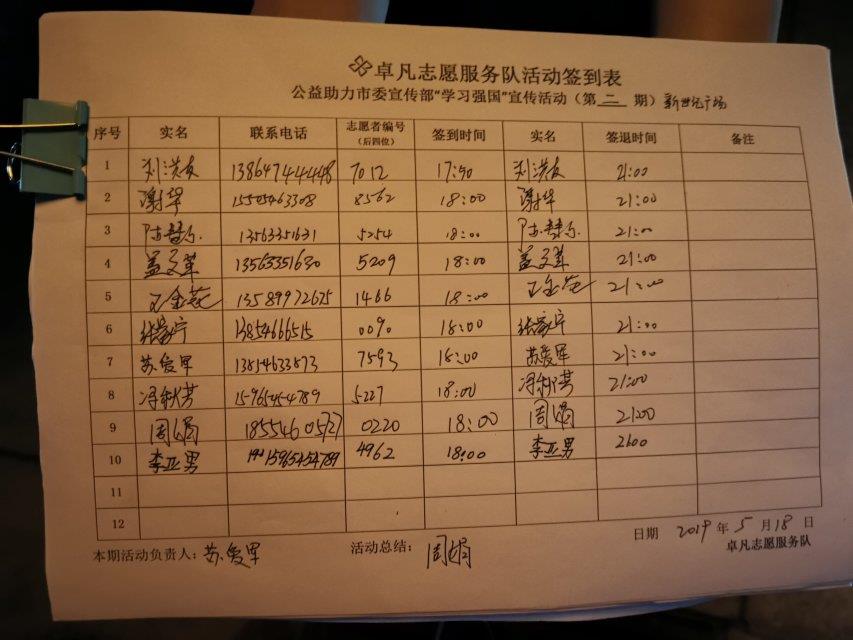 卓凡志愿服务队活动签到表
公益助力市委宣传部"学习强国"宣传活动（第二期）新世纪广场
序号 实名 联系电话 志愿者编号（后四位） 签到时间 实名 签退时间 备注
1 刘洪友 13864744448 7012 17:50 刘洪友 21:00
2 谢华 15505463308 8562 18:00 谢华 21:00
3 13563351631 5254 18:00 21:00
4 13563351630 5209 18:00 21:00
5 王金花 13589972675 1466 18:00 王金花 21:00
6 13854666515 0090 18:00 21:00
7 苏爱军 7593 18:00 苏爱军 21:00
8 冯秋芳 15965454789 5227 18:00 冯秋芳 21:00
9 周娟 18554605727 0220 18:00 周娟 21:00
10 李亚男 15965454789 4962 18:00 李亚男 2100
11
12
日期 2019年5月18日
本期活动负责人：苏爱军 活动总结：周娟 卓凡志愿服务队